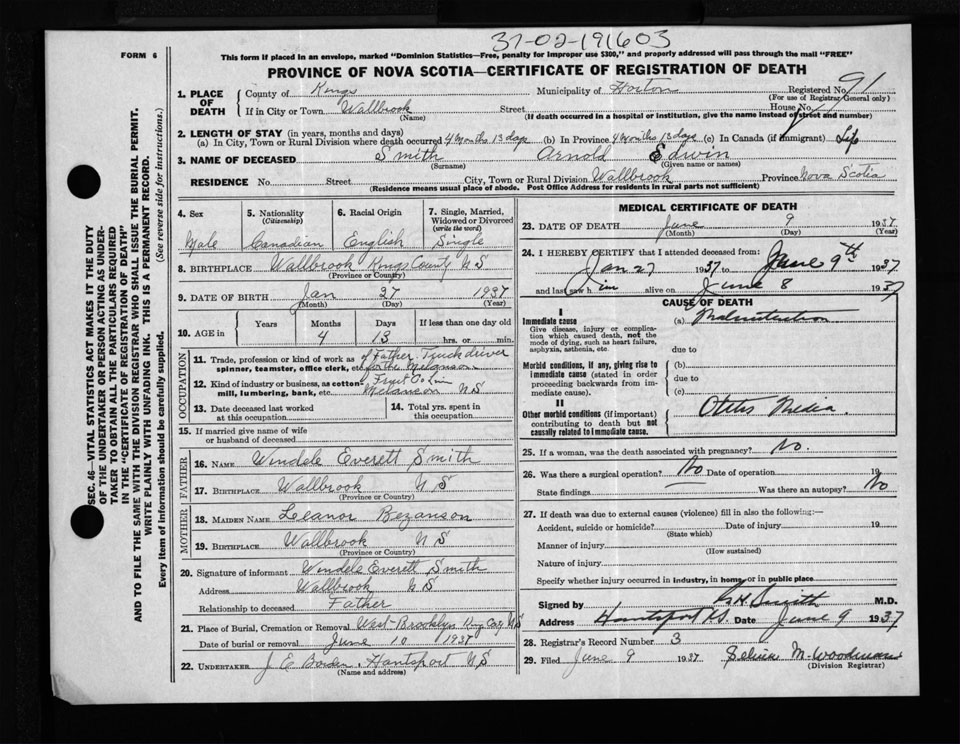 37-02-191603
FORM 6
This form if placed in an envelope, marked "Dominion Statistics—Free, penalty for improper use $300," and properly addressed will pass through the mail "FREE"
PROVINCE OF NOVA SCOTIA—CERTIFICATE OF REGISTRATION OF DEATH
SEC. 46—VITAL STATISTICS ACT MAKES IT THE DUTY
OF THE UNDERTAKER OR PERSON ACTING AS UNDER-
TAKER TO OBTAIN ALL THE PARTICULARS REQUIRED
IN THE "CERTIFICATE OF REGISTRATION OF DEATH"
AND TO FILE THE SAME WITH THE DIVISION REGISTRAR WHO SHALL ISSUE THE BURIAL PERMIT.
WRITE PLAINLY WITH UNFADING INK. THIS IS A PERMANENT RECORD.
Every item of information should be carefully supplied. (See reverse side for instructions.)
1. PLACE OF DEATH County of Kings Municipality of Horton Registered No. 91
(For use of Registrar General only)
If in City or Town Wallbrook Street House No.
(Name) (If death occurred in a hospital or institution, give the name instead of street and number)
2. LENGTH OF STAY (in years, months and days)
(a) In City, Town or Rural Division where death occurred 4 Months 13 days (b) In Province 4 Months 13 days (c) In Canada (if immigrant) Life
3. NAME OF DECEASED Smith Arnold Edwin
(Surname) (Given name or names)
RESIDENCE No. Street City, Town or Rural Division Wallbrook Province Nova Scotia
(Residence means usual place of abode. Post Office Address for residents in rural parts not sufficient)
4. Sex 5. Nationality (Citizenship) 6. Racial Origin 7. Single, Married, Widowed or Divorced (write the word)
Male Canadian English Single
8. BIRTHPLACE Wallbrook Kings County N S
(Province or Country)
9. DATE OF BIRTH Jan 27 1937
(Month) (Day) (Year)
10. AGE in Years Months Days If less than one day old
4 13 hrs. or min.
OCCUPATION
11. Trade, profession or kind of work as of Father Truck driver
spinner, teamster, office clerk, etc. for the Melanson
12. Kind of industry or business, as cotton Fruit Co Lim
mill, lumbering, bank, etc. Melanson N S
13. Date deceased last worked at this occupation 14. Total yrs. spent in this occupation
15. If married give name of wife
or husband of deceased
FATHER
16. NAME Windele Everett Smith
17. BIRTHPLACE Wallbrook N S
(Province or Country)
MOTHER
18. MAIDEN NAME Leanor Bezanson
19. BIRTHPLACE Wallbrook N S
(Province or Country)
20. Signature of informant Windele Everett Smith
Address Wallbrook N S
Relationship to deceased Father
21. Place of Burial, Cremation or Removal West Brooklyn King Coty N S
Date of burial or removal June 10 1937
22. UNDERTAKER J E Hantsport N S
(Name and address)
MEDICAL CERTIFICATE OF DEATH
23. DATE OF DEATH June 9 1937
(Month) (Day) (Year)
24. I HEREBY CERTIFY that I attended deceased from:
Jan 27 1937 to June 9th 1937
and last saw him alive on June 8 1937
CAUSE OF DEATH
I
Immediate cause (a) Malnutrition
Give disease, injury or complica-
tion which caused death, not the
mode of dying, such as heart failure,
asphyxia, asthenia, etc. due to
Morbid conditions, if any, giving rise to (b)
immediate cause (stated in order due to
proceeding backwards from im-
mediate cause). (c)
II
Other morbid conditions (if important) Otitis Media
contributing to death but not
causally related to immediate cause.
25. If a woman, was the death associated with pregnancy? No.
26. Was there a surgical operation? No Date of operation 19
State findings Was there an autopsy? No
27. If death was due to external causes (violence) fill in also the following:—
Accident, suicide or homicide? Date of injury 19
(State which)
Manner of injury
(How sustained)
Nature of injury
Specify whether injury occurred in industry, in home, or in public place
Signed by Smith M.D.
Address Hantsport N.S. Date June 9 1937
28. Registrar's Record Number 3
29. Filed June 9 1937 Selina M. Woodman
(Division Registrar)